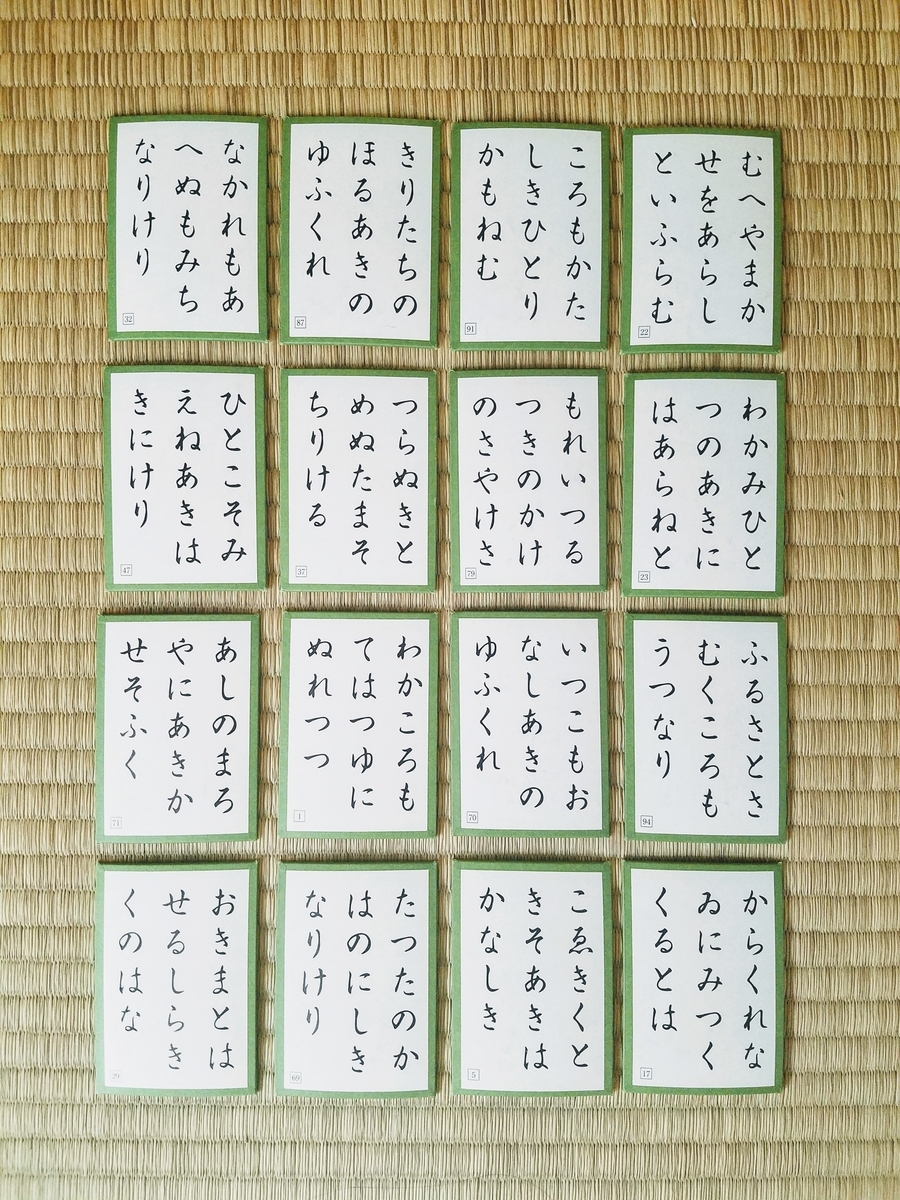 むへやまか
せをあらし
といふらむ
22
ころもかた
しきひとり
かもねむ
91
きりたちの
ほるあきの
ゆふくれ
87
なかれもあ
へぬもみち
なりけり
32
わかみひと
つのあきに
はあらねと
23
もれいつる
つきのかけ
のさやけさ
79
つらぬきと
めぬたまそ
ちりける
37
ひとこそみ
えねあきは
きにけり
47
ふるさとさ
むくころも
うつなり
94
いつこもお
なしあきの
ゆふくれ
70
わかころも
てはつゆに
ぬれつつ
1
あしのまろ
やにあきか
せそふく
71
からくれな
ゐにみつく
くるとは
17
こゑきくと
きそあきは
かなしき
5
たつたのか
はのにしき
なりけり
69
おきまとは
せるしらき
くのはな
29